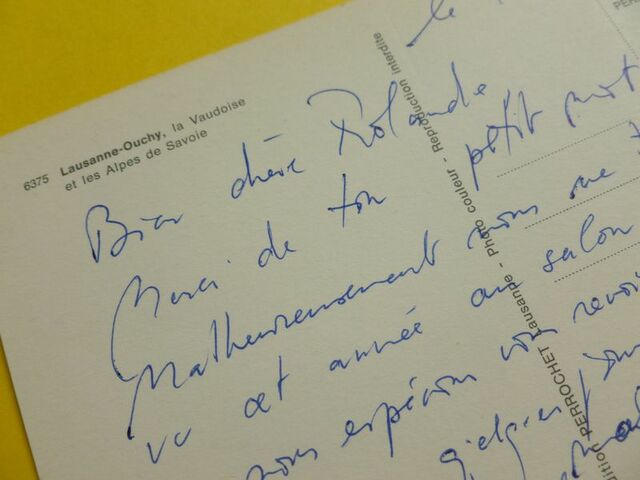 6375 Lausanne-Ouchy, la Vaudoise
et les Alpes de Savoie
Edition PERROCHET Lausanne - Photo couleur - Reproduction interdite
le
Bien chère Rolande
Merci de ton petit mot
Malheureusement nous ne
vu cet année au salon
nous espérons vous revoir